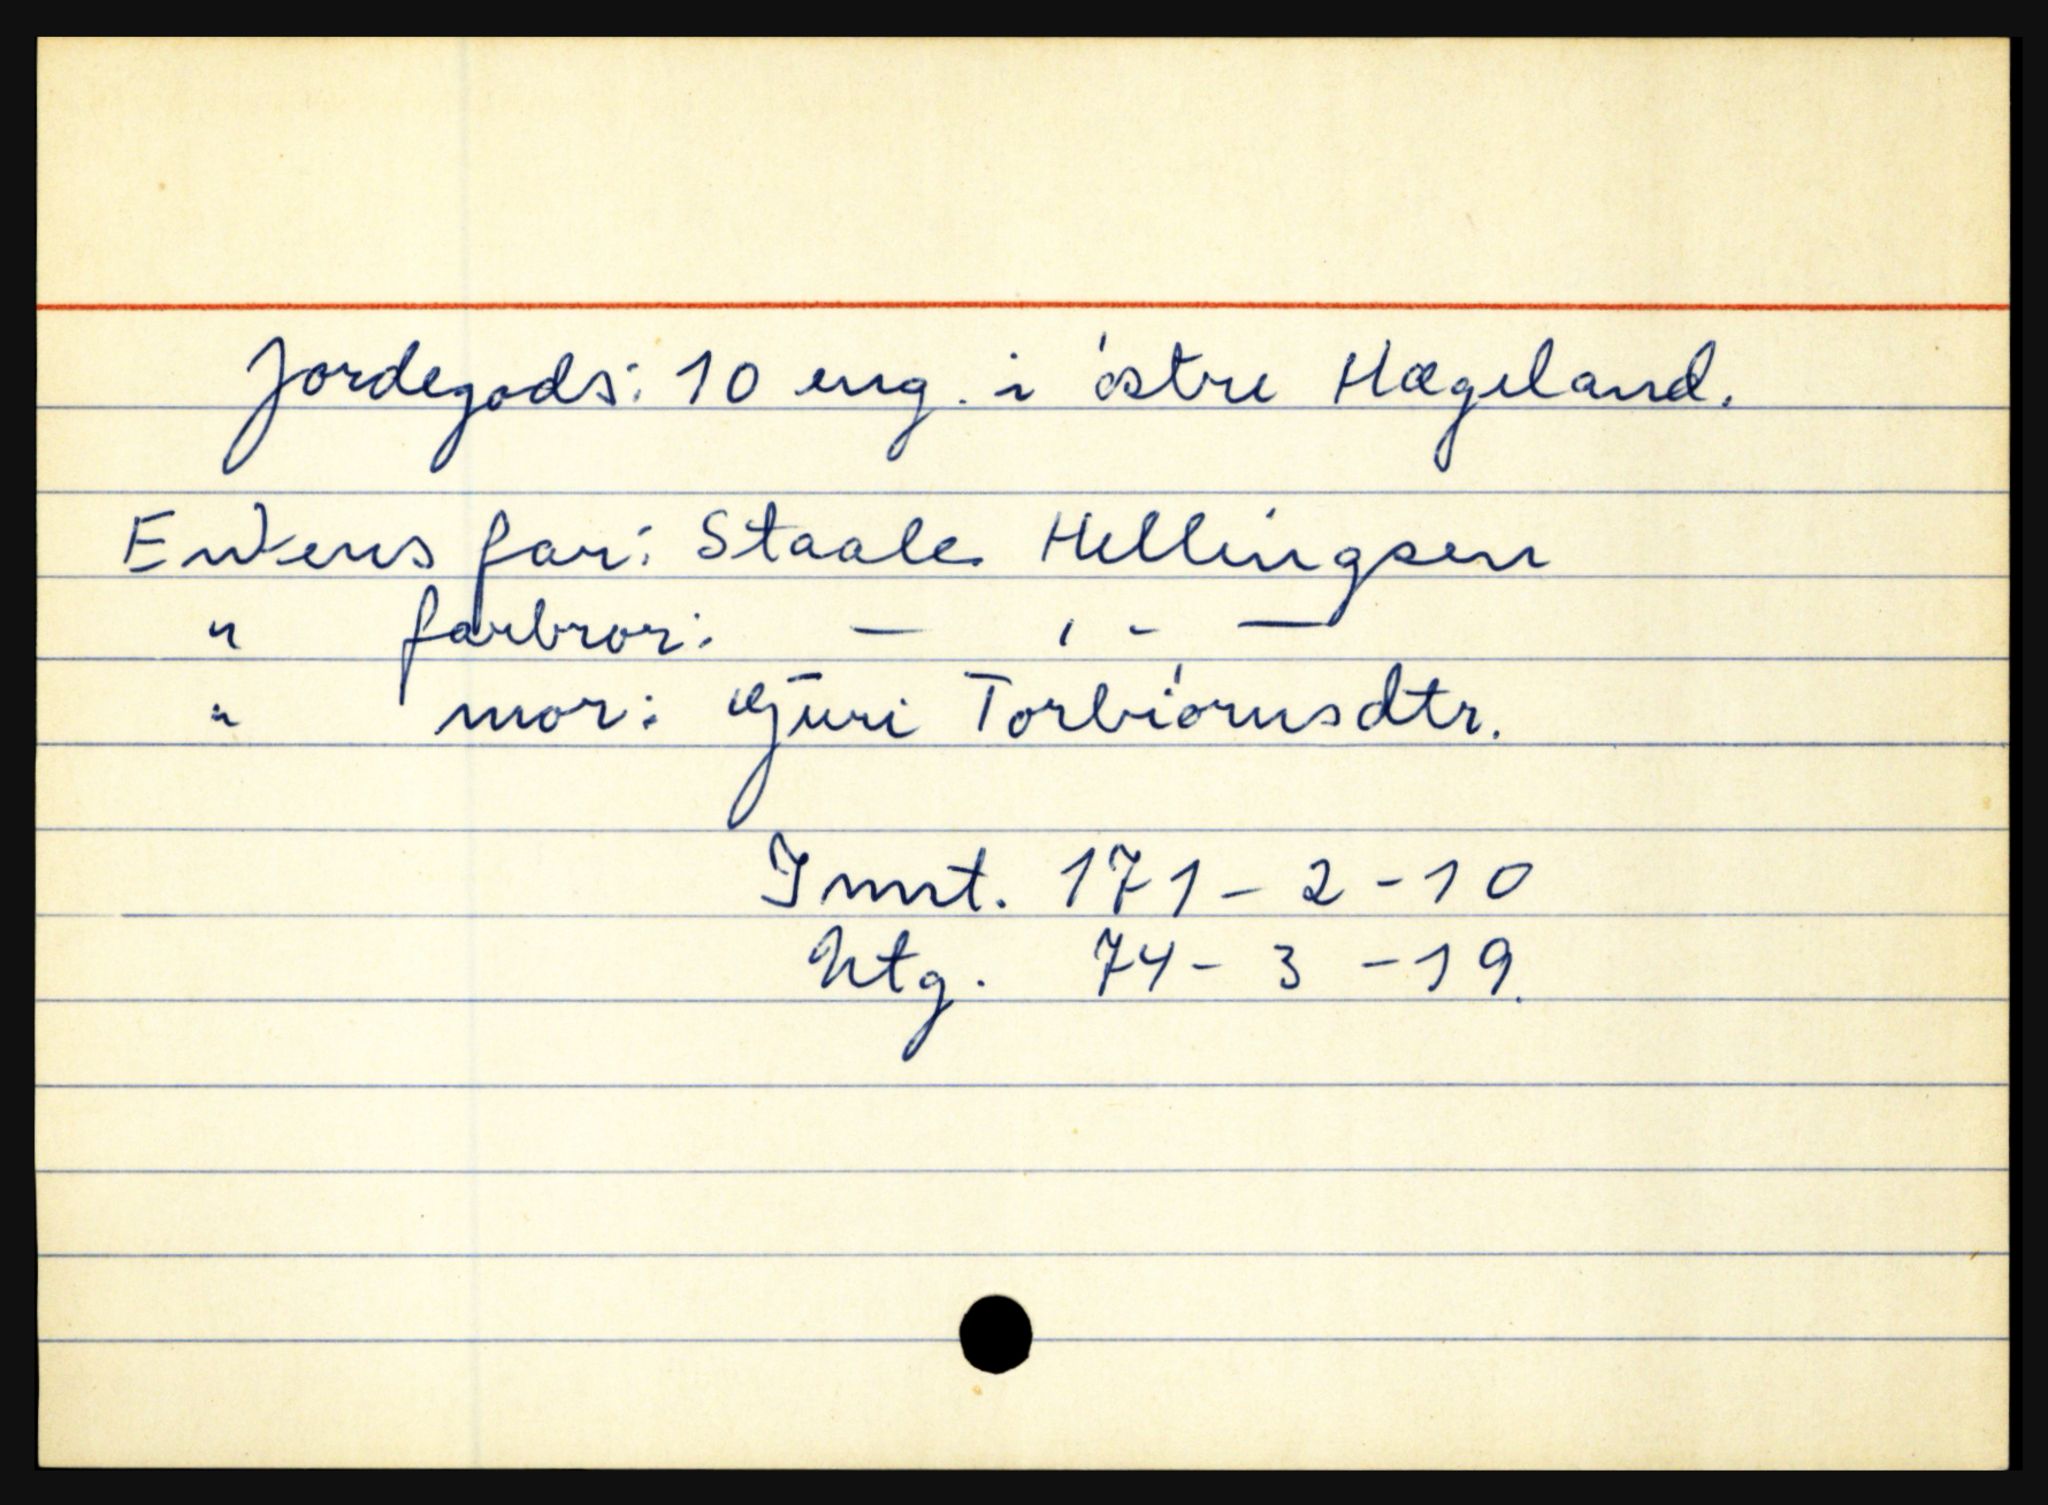 Jordegods: 10 eng. i östre Hægeland.
Enkens far: Staale Hellingsen
" farbror: — , - —
" mor: Giuri Torbiörnsdtr.
Innt. 171 - 2 - 10
Utg. 74 - 3 - 19.